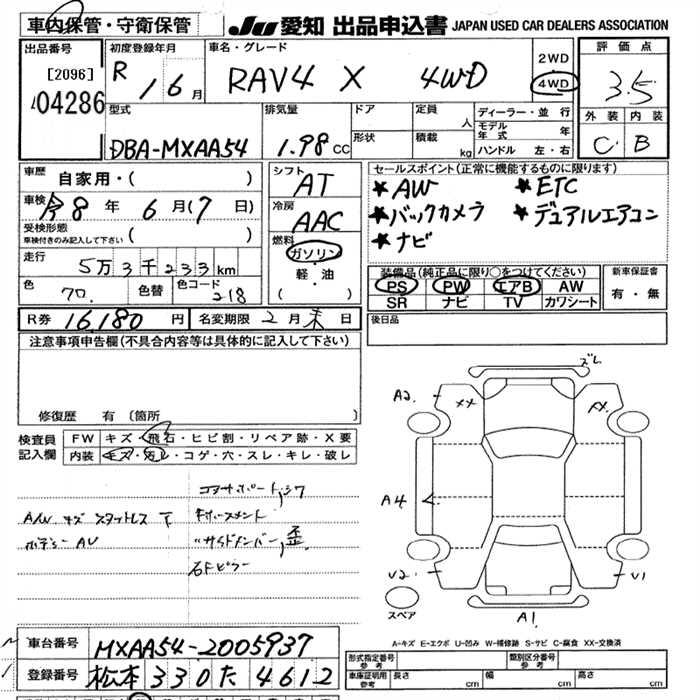 車内保管・守衛保管 JU 愛知 出品申込書 JAPAN USED CAR DEALERS ASSOCIATION
出品番号 [2096] 04286
初度登録年月 R 1 6月
車名・グレード RAV4 X 4WD
2WD 4WD
評価点 3.5
外装 内装
C B
型式 DBA-MXAA54
排気量 1.98 CC
ドア 形状
定員 人
積載 kg
ディーラー・並行
モデル年式 年
ハンドル 左・右
車歴 自家用・( )
車検 8年 6月(7日)
受検形態 車検付きのみ記入して下さい ( )
走行 5万3千233km
色 70. 色替 色コード 218
シフト AT
冷房 AAC
燃料 ガソリン 軽・油 ( )
セールスポイント(正常に機能するものに限ります)
★AW ★ETC
★バックカメラ ★デュアルエアコン
★ナビ
装備品(純正品に限り○をつけてください)
PS PW エアB AW
SR ナビ TV カワシート
新車保証書 有・無
R券 16,180円 名変期限 2月末日
後日品
注意事項申告欄(不具合内容等は具体的に記入して下さい)
修復歴 有 〔箇所
検査員記入欄
FW キズ・飛石・ヒビ割・リペア跡・X要
内装 キズ・汚レ・コゲ・穴・スレ・キレ・破レ
コアサポートシワ
A/W キズ スタットレス
ボデー AU
サイドメンバー, 歪
ズレ
A2 XX XX
A4
U2 U1
A1
スペア
A-キズ E-エクボ U-凹み W-補修跡 S-サビ C-腐食 XX-交換済
車台番号 MXAA54-2005937
登録番号 松本 330 た 4612
形式指定番号 参考
類別区分番号 参考
車庫証明用 参考 長さ cm 幅 cm 高さ cm